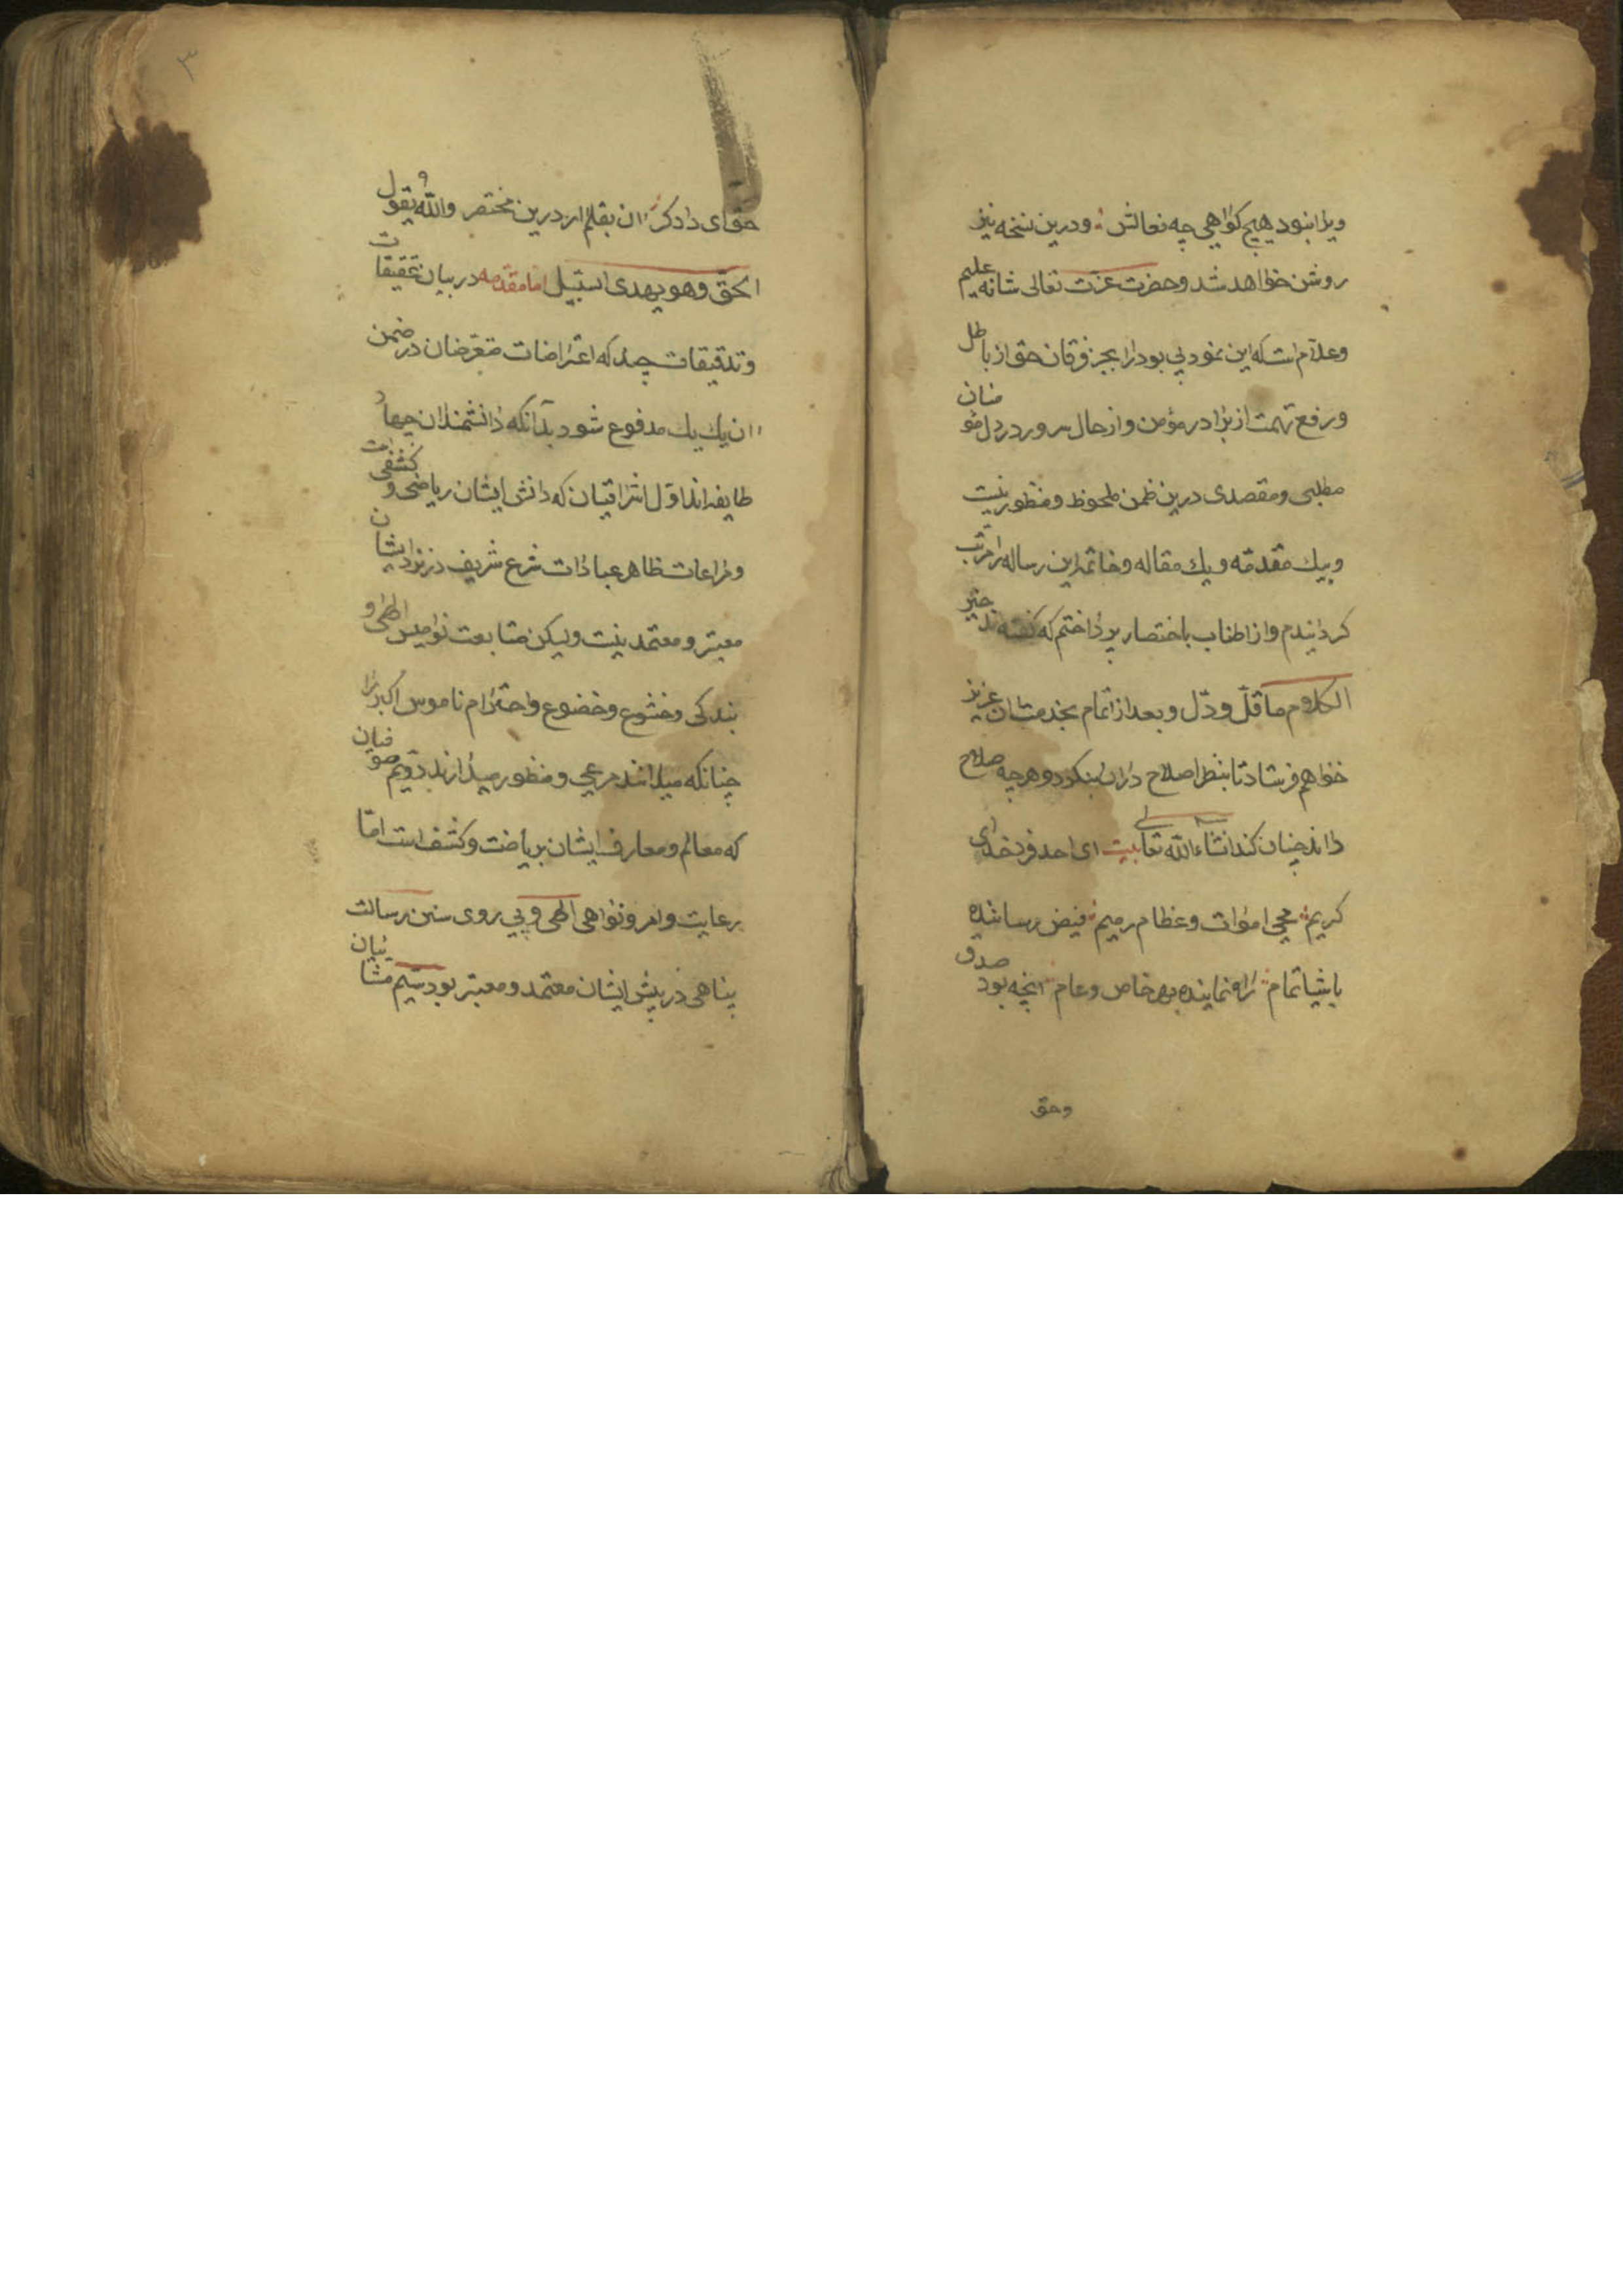 ویرا نبود هیچ کواهی چه فعالش ؛ ودرین نسخه نیز
روشن خواهد شد وحضرت عزّت تعالی شانه علیم
وعلاّم است که این نمود بی بود را بجز فرقان حق از باطل
ورفع تهمت از برادر مؤمن وازحال سرور در دل مؤمنان
مطلبی ومقصدی درین ضمن ملحوظ ومنظور نیست
وبیك مقدمّه ویك مقاله وخاتمه این رساله را مرتّب
کردانیدم واز اطناب باختصار پرداختم که کفته اند خیر
الکلام ما قلّ ودلّ وبعد از اتمام بخدمت آن عزیز
خواهم فرستاد تا بنظر اصلاح در ان بنکرد وهرچه صلاح
داند چنان کند انشاء الله تعالی بیت ای احد فرد خدای
کریم ؛ محیی اموات وعظام رمیم ؛ فیض رساننده
باشیا تمام ؛ راه نماینده بهر خاص وعام ؛ انچه بود صدق
وحق
۳
حق ای دادکر ؛ ان بقلم ار درین مختصر والله یقول
الحق وهو یهدی السّبیل اما مقدّمه در بیان تحقیقات
وتدقیقات چند که اعتراضات متعرّضان در ضمن
ان یك یك مدفوع شود بدانکه دانشمندان چهار
طایفه اند اوّل اشراقیان که دانش ایشان ریاضی وکشفی است
ومراعات ظاهر عبادات شرع شریف در نزد ایشان
معتبر ومعتمد نیست ولیکن متابعت نوامیس الهی و
بندکی وخشوع وخضوع واحترام ناموس اکبر را
چنانکه میدانند مرعی ومنظور میدارند دویم صوفیان
که معالم ومعارف ایشان بریاضت وکشف است امّا
رعایت وامر ونواهی الهی وپی روی سنن رسالت
پناهی در پیش ایشان معتمد ومعتبر بود سیّم مشّائیان